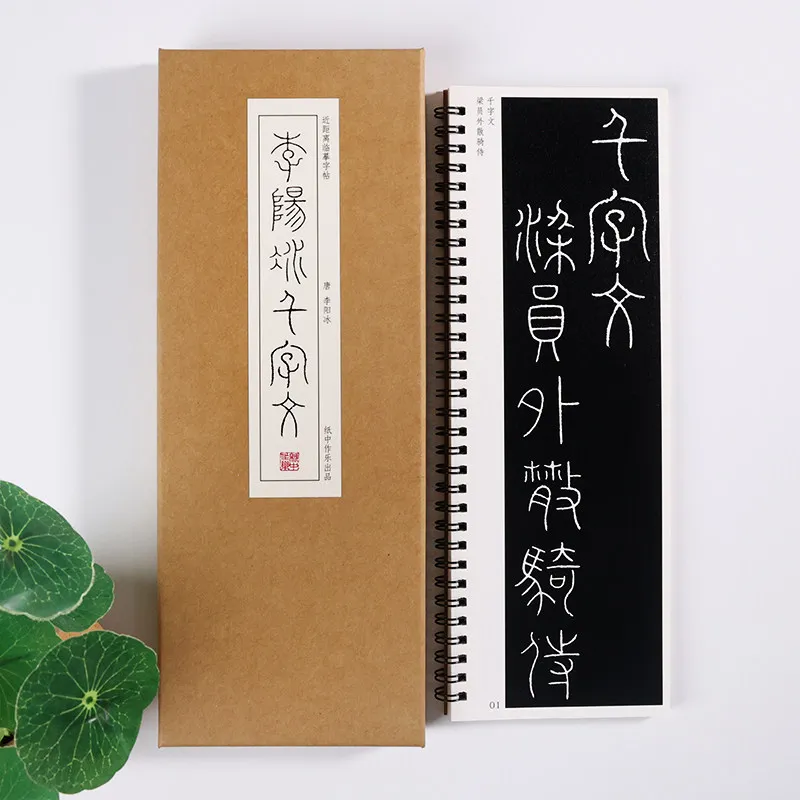 近距离临摹字帖
唐 李阳冰
纸中作乐出品
李陽冰千字文
千字文
梁員外散騎侍
千字文
梁员外散骑侍
01